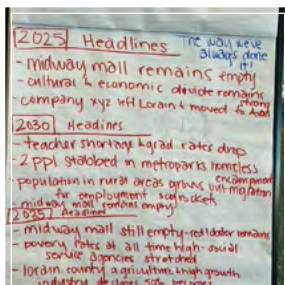 2025 Headlines The way we've
always done
it!
- midway mall remains empty
- cultural & economic divide remains
- company xyz left Lorain & moved to Avon
strong
2030 Headines
- teacher shortage & grad rates drop
- 2 ppl stabbed in metroparks homeless
encampment
- population in rural areas grows out-migration
for employment skyrockets
- midway mall remains empty!
2035 Headlines
- midway mall still empty-red lobster remains
- povery rates at all time high- social
service agencies stretched
- lorain county agriculture & high growth
industry declines